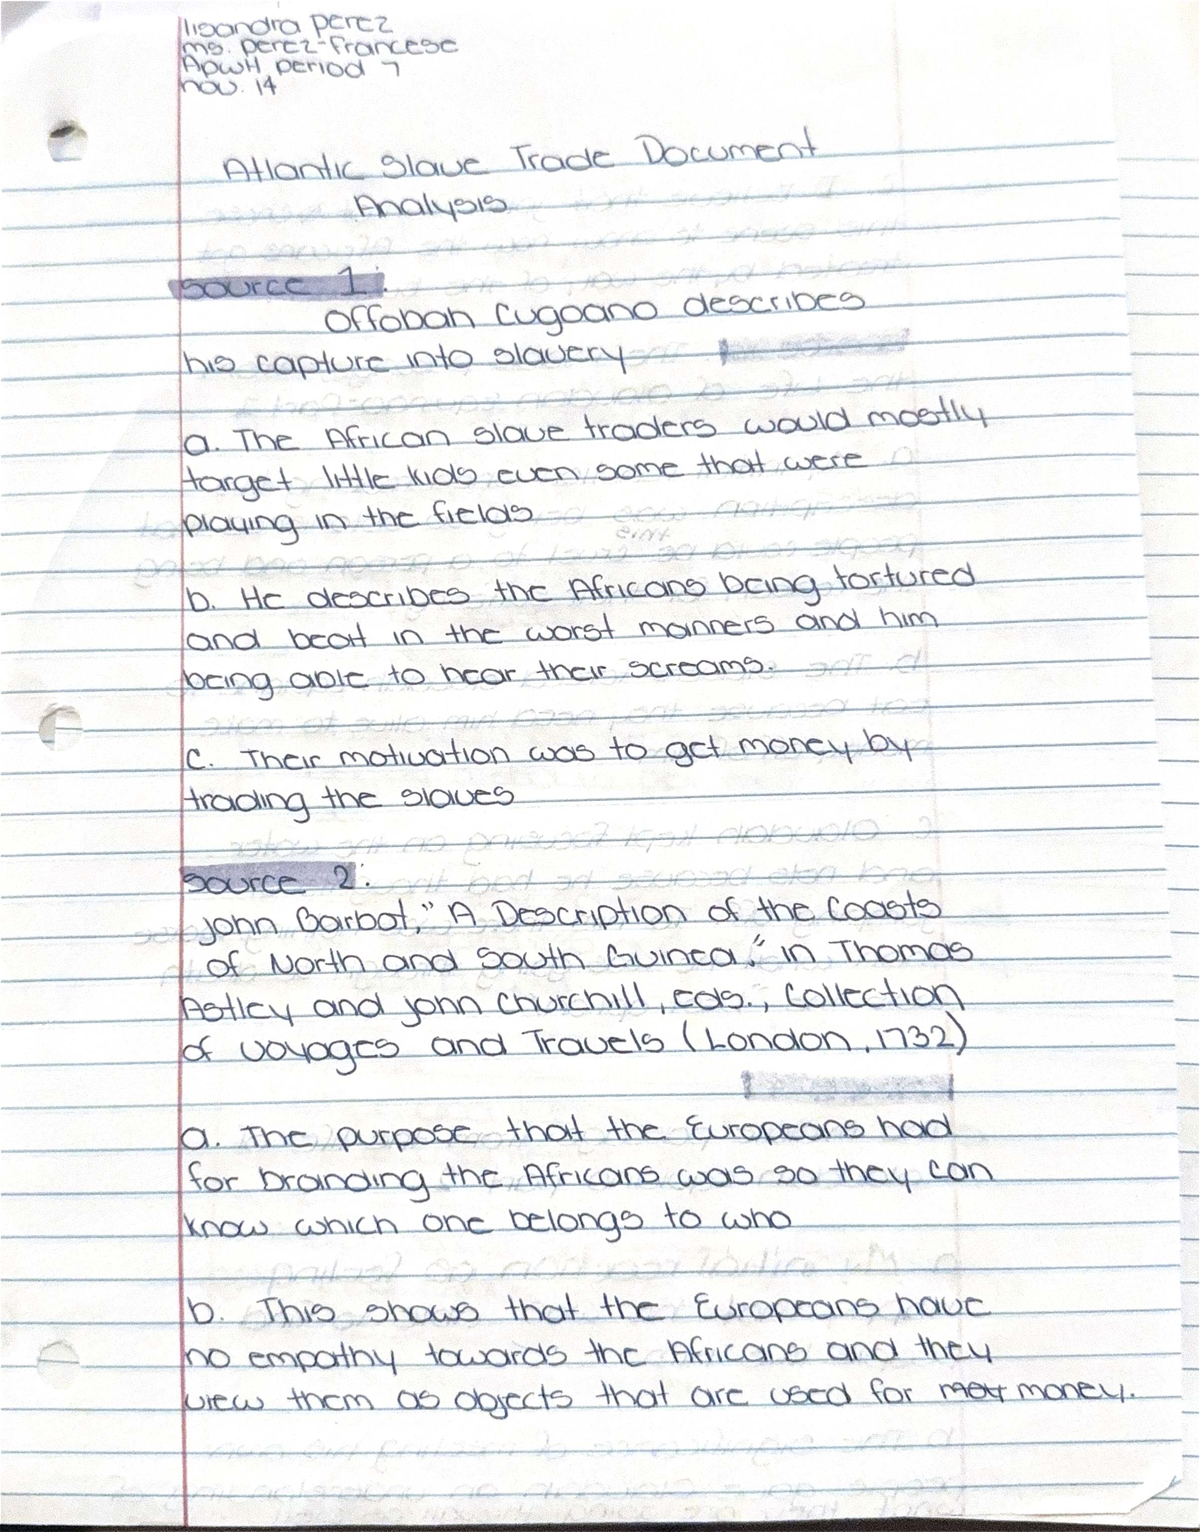 lisandra perez
ms. perez-francese
APWH period 7
nov. 14
Atlantic Slave Trade Document
Analysis
source 1:
Offobah Cugoano describes
his capture into slavery
a. The African slave traders would mostly
target little kids even some that were
playing in the fields
b. He describes the Africans being tortured
and beat in the worst manners and him
being able to hear their screams.
c. Their motivation was to get money by
trading the slaves
source 2:
John Barbot," A Description of the Coasts
of North and South Guinea," in Thomas
Astley and John Churchill, eds., Collection
of Voyages and Travels (London, 1732)
a. The purpose that the Europeans had
for branding the Africans was so they can
know which one belongs to who
b. This shows that the Europeans have
no empathy towards the Africans and they
view them as objects that are used for money.